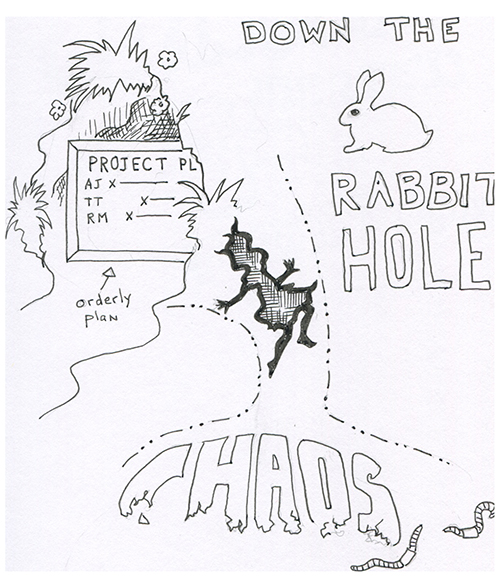 DOWN THE
RABBIT
HOLE
PROJECT PL
AJ X
TT X
RM X
orderly
plan
CHAOS